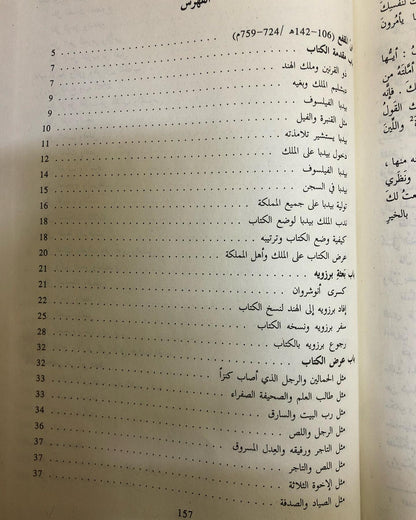 الفهرس
المقفع (106–142هـ /724–759م) 5
باب مقدمة الكتاب 7
ذو القرنين وملك الهند 7
دبشليم الملك وبغيه 9
بيدبا الفيلسوف 9
مثل القنبرة والفيل 10
بيدبا يستشير تلامذته 11
دخول بيدبا على الملك 12
بيدبا الفيلسوف 14
بيدبا في السجن 15
تولية بيدبا على جميع المملكة 16
ندب الملك بيدبا لوضع الكتاب 18
كيفية وضع الكتاب وترتيبه 18
عرض الكتاب على الملك وأهل المملكة 20
باب بعثة برزويه 21
كسرى أنوشروان 21
إفاد برزويه إلى الهند لنسخ الكتاب 22
سفر برزويه ونسخه الكتاب 25
رجوع برزويه بالكتاب 28
باب عرض الكتاب 32
مثل الحمالين والرجل الذي أصاب كنزاً 32
مثل طالب العلم والصحيفة الصفراء 33
مثل رب البيت والسارق 33
مثل الرجل واللص 34
مثل التاجر ورفيقه والعِدل المسروق 36
مثل اللص والتاجر 37
مثل الإخوة الثلاثة 37
مثل الصياد والصدفة 37
157
لنفسِكَ
يأمُرونَ
: أيسُّها
أمَّلتَهُ مِن
فإنَّه
القولُ
واللِّينَ
منها ،
ونظَري
لكَ
بالخير